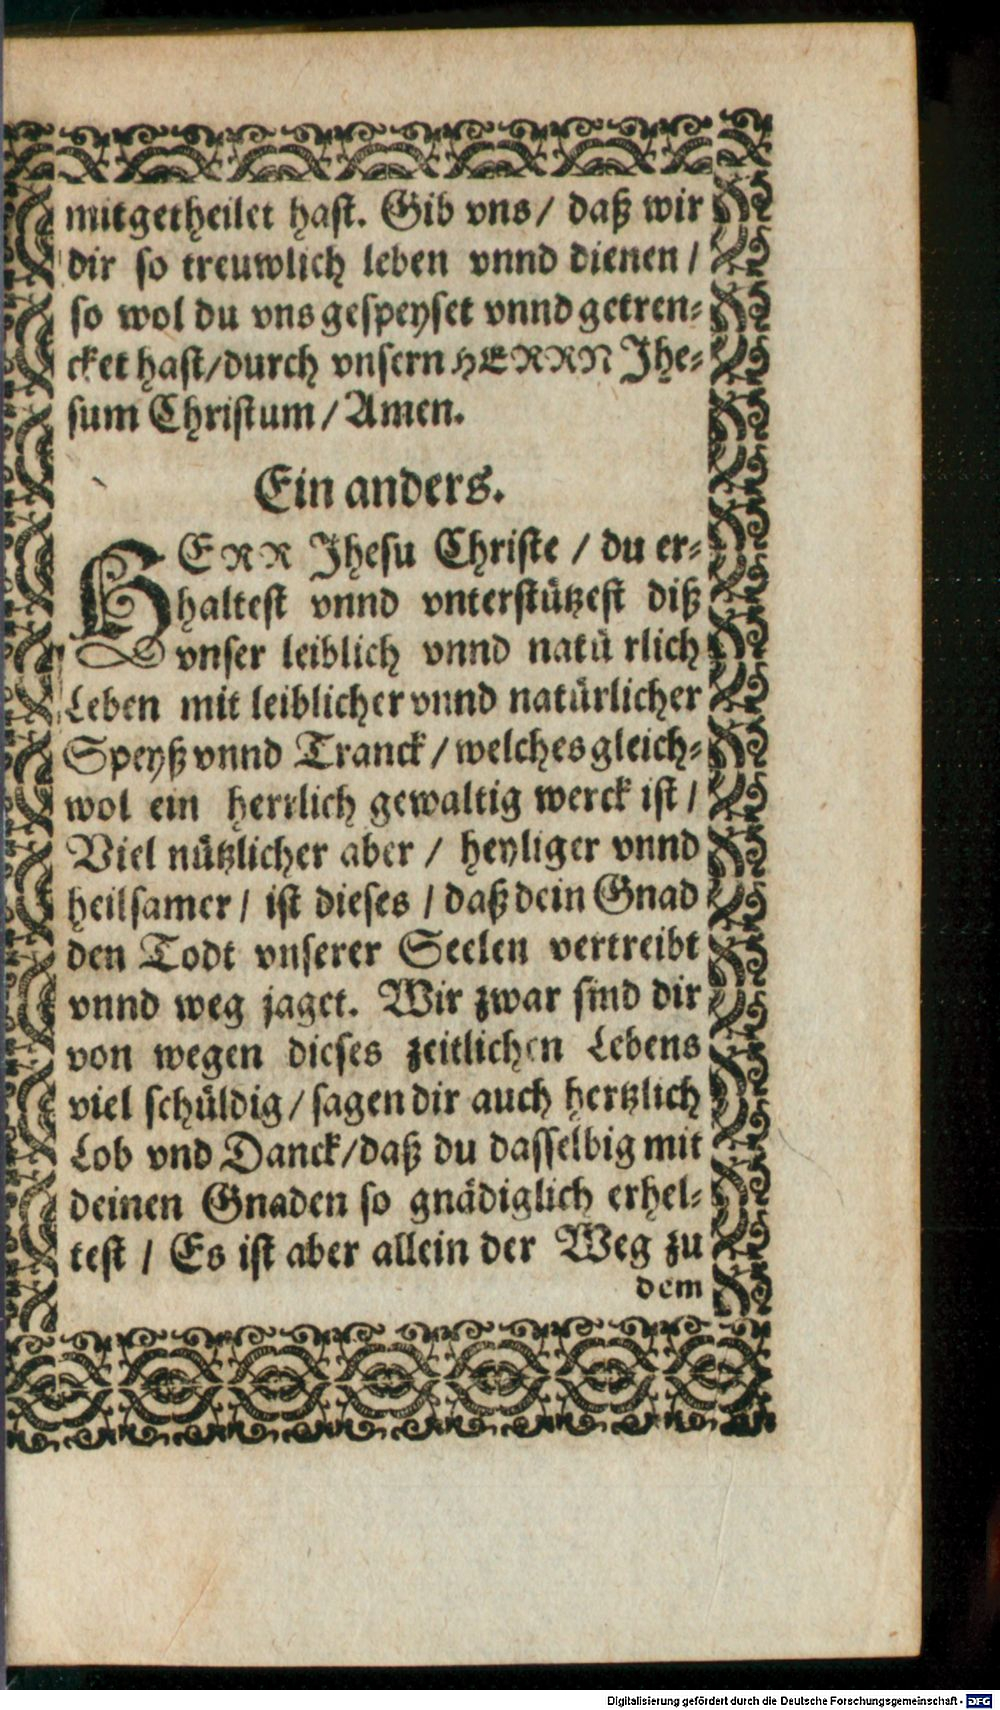 mitgetheilet hast. Gib vns / daß wir
dir so treuwlich leben vnnd dienen /
so wol du vns gespeyset vnnd getren-
cket hast / durch vnsern HERRN Jhe-
sum Christum / Amen.
Ein anders.
HERR Jhesu Christe / du er-
haltest vnnd vnterstützest diß
vnser leiblich vnnd natü rlich
Leben mit leiblicher vnnd natürlicher
Speyß vnnd Tranck / welches gleich-
wol ein herrlich gewaltig werck ist /
Viel nützlicher aber / heyliger vnnd
heilsamer / ist dieses / daß dein Gnad
den Todt vnserer Seelen vertreibt
vnnd weg jaget. Wir zwar sind dir
von wegen dieses zeitlichen Lebens
viel schüldig / sagen dir auch hertzlich
Lob vnd Danck / daß du dasselbig mit
deinen Gnaden so gnädiglich erhel-
test / Es ist aber allein der Weg zu
dem
Digitalisierung gefördert durch die Deutsche Forschungsgemeinschaft - DFG